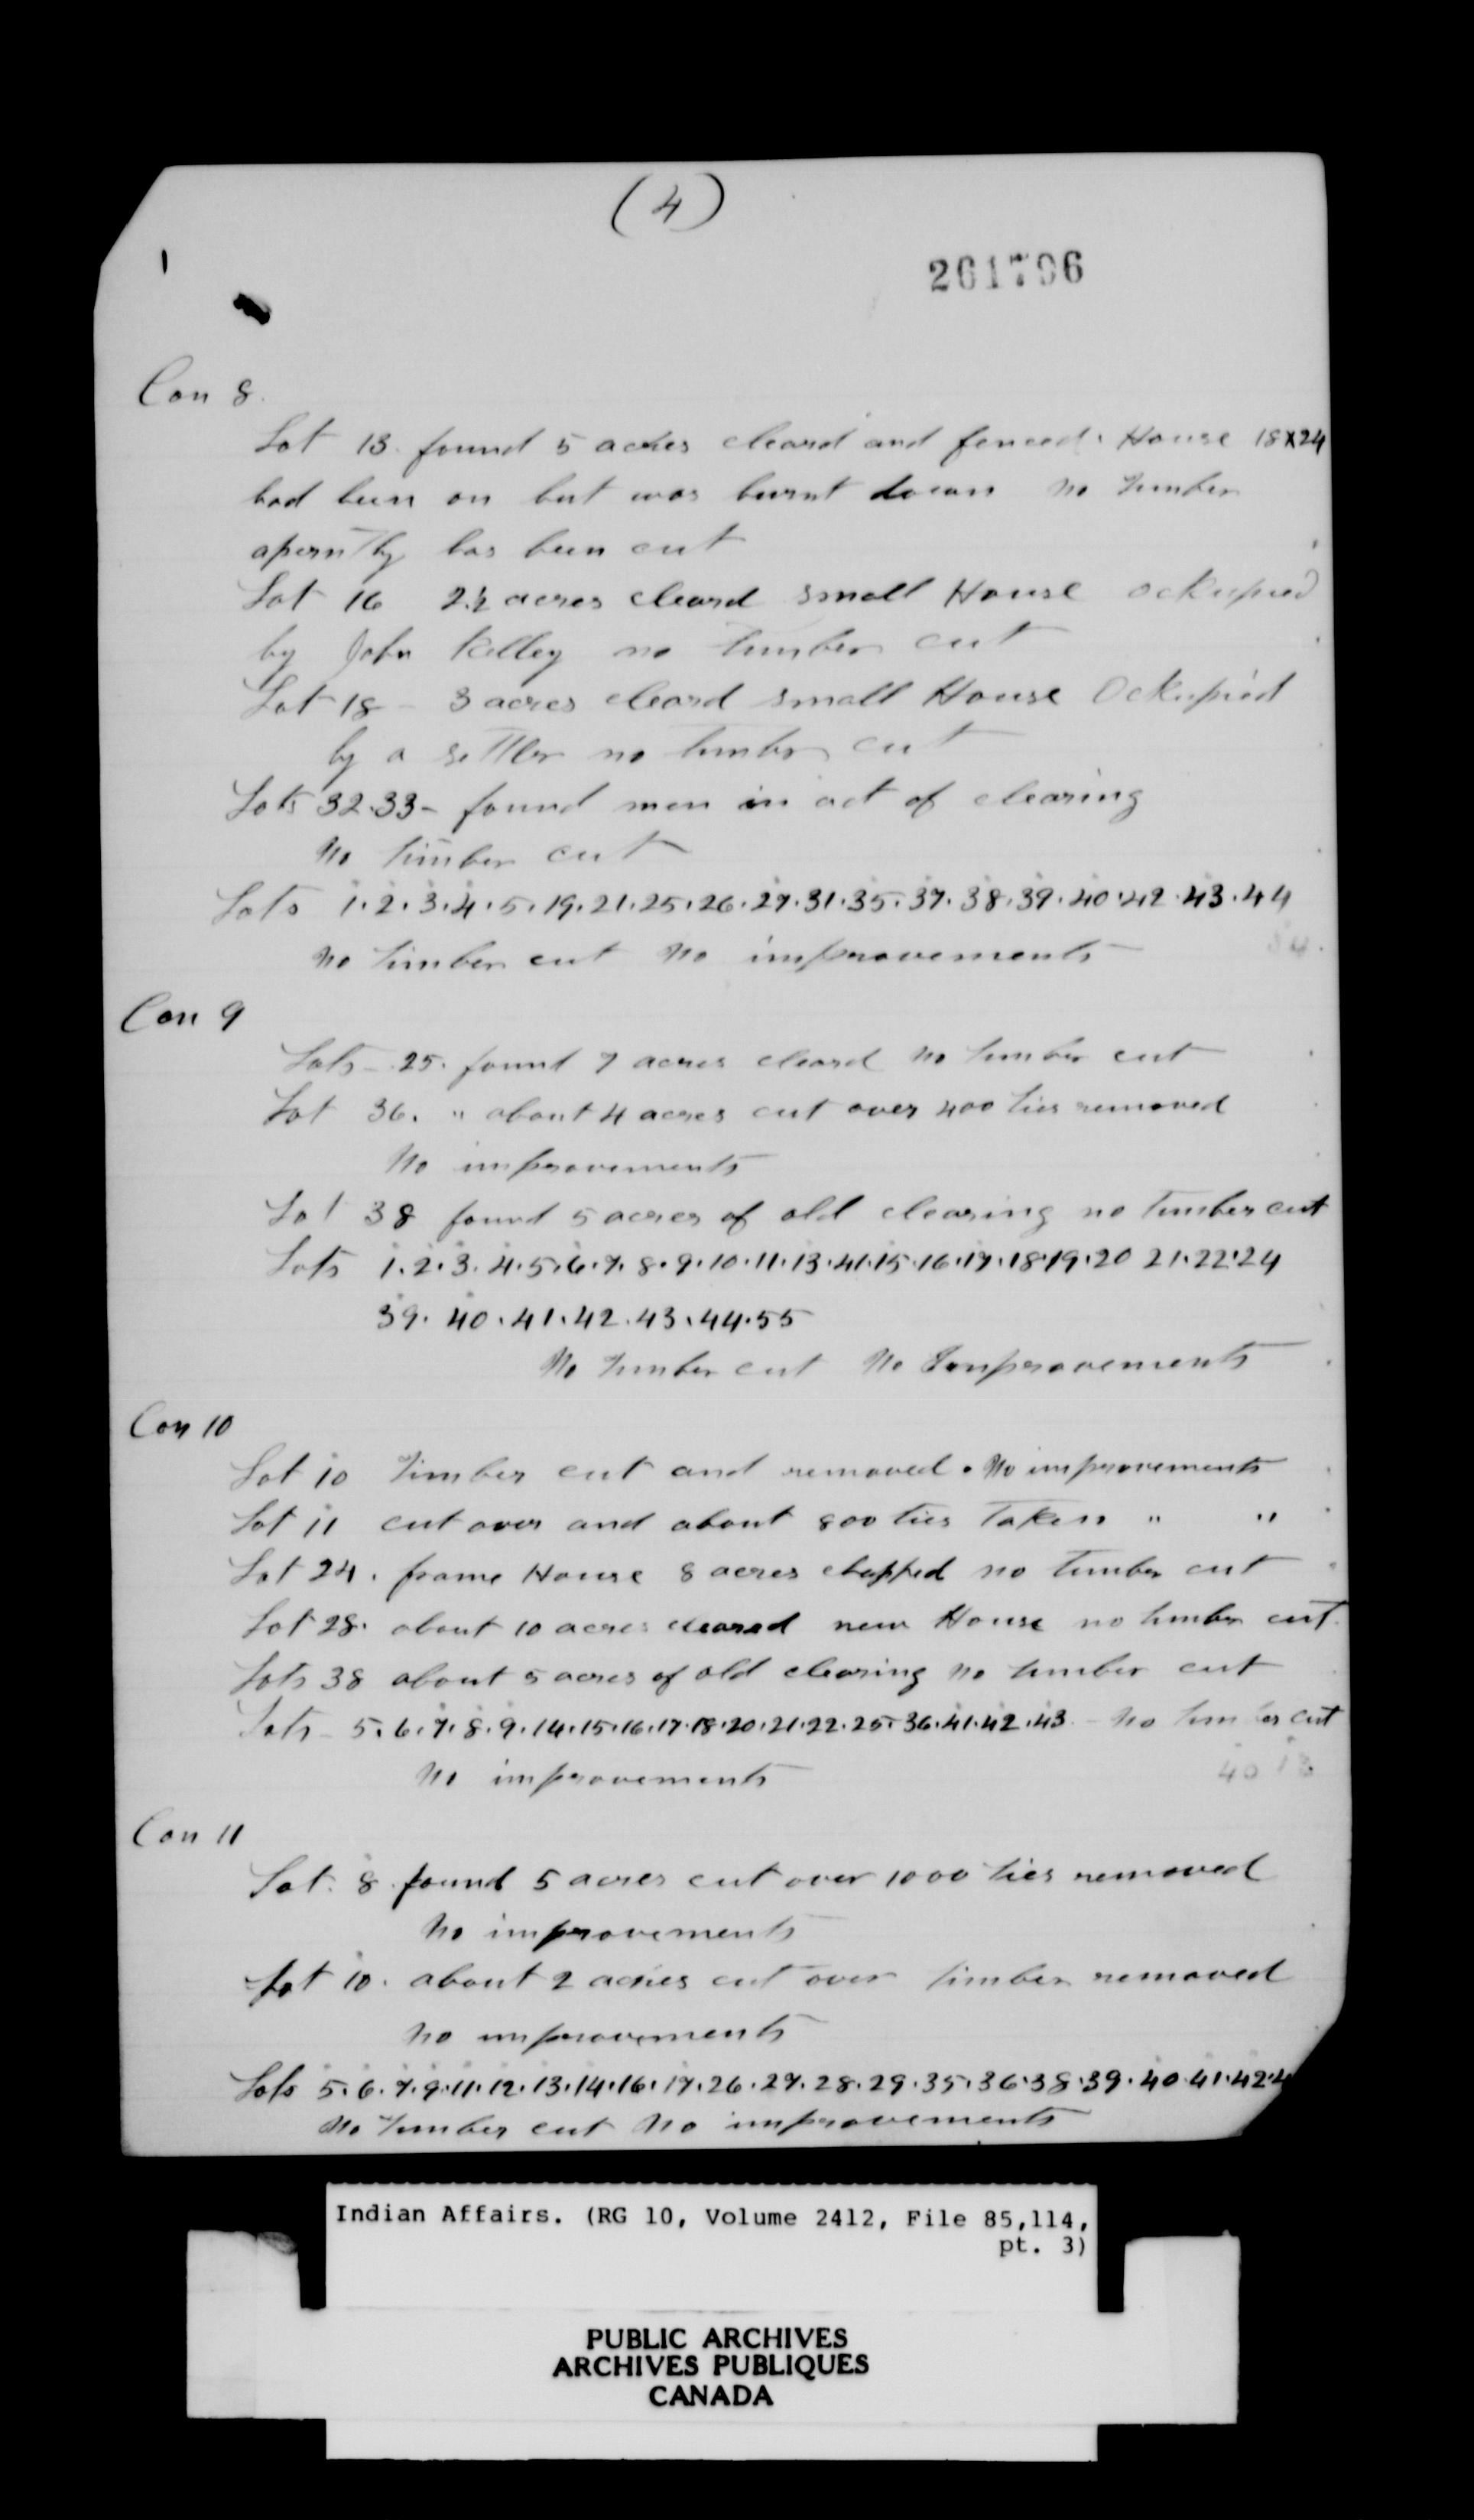 (4)
261796
Con 8.
Lot 13. found 5 acres cleard and fenced. House 18x24
had been on but was burnt down no timber
aperntly has been cut
Lot 16 2½ acres cleard small House ockupied
by John Kelley no timber cut
Lot 18 - 3 acres cleard small House Ockupied
by a settler no timber cut
Lots 32.33 - found men in act of clearing
No timber cut
Lots 1.2.3.4.5.19.21.25.26.27.31.35.37.38.39.40.42.43.44
No timber cut No improvements
Con 9
Lots - 25. found 7 acres cleard No timber cut
Lot 36. " about 4 acres cut over 400 ties removed
No improvements
Lot 38 found 5 acres of old clearing no timber cut
Lots 1.2.3.4.5.6.7.8.9.10.11.13.41.15.16.17.18.19.20 21.22.24
39.40.41.42.43.44.55
No timber cut No Improvements
Con 10
Lot 10 Timber cut and removed. No improvements
Lot 11 cut over and about 800 ties Taken " "
Lot 24. frame House 8 acres chopped no timber cut
Lot 28. about 10 acres cleared new House no timber cut.
Lots 38 about 5 acres of old clearing No timber cut
Lots - 5.6.7.8.9.14.15.16.17.18.20.21.22.25.36.41.42.43 - No timber cut
No improvements
Con 11
Lot. 8. found 5 acres cut over 1000 ties removed
No improvements
Lot 10. about 2 acres cut over timber removed
No improvements
Lots 5.6.7.9.11.12.13.14.16.17.26.27.28.29.35.36.38.39.40.41.42.4
No Timber cut No improvements
Indian Affairs. (RG 10, Volume 2412, File 85,114,
pt. 3)
PUBLIC ARCHIVES
ARCHIVES PUBLIQUES
CANADA